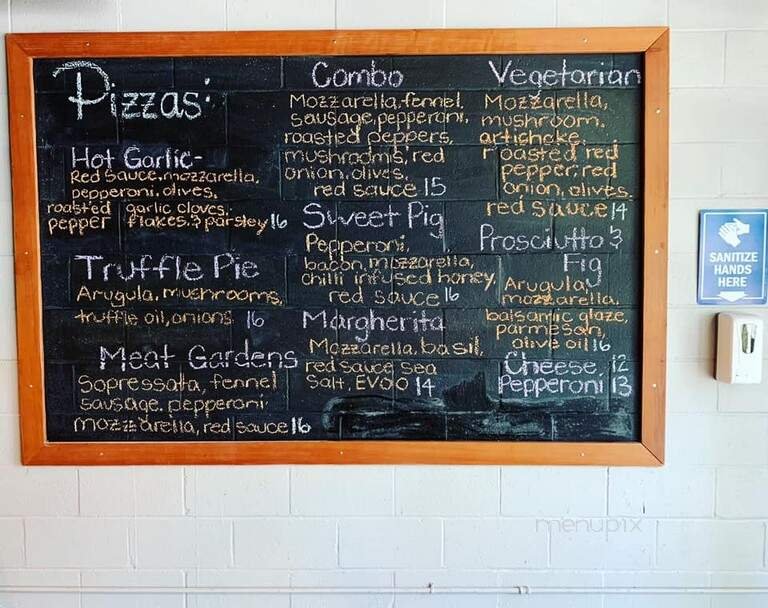 Pizzas:
Hot Garlic-
Red sauce, mozzarella,
pepperoni, olives,
roasted garlic cloves,
pepper flakes & parsley 16
Truffle Pie
Arugula, mushrooms,
truffle oil, onions 16
Meat Gardens
Sopressata, fennel
sausage, pepperoni
mozzarella, red sauce 16
Combo
Mozzarella, fennel,
sausage, pepperoni,
roasted peppers,
mushrooms, red
onion, olives,
red sauce 15
Sweet Pig
Pepperoni,
bacon, mozzarella,
chilli infused honey,
red sauce 16
Margherita
Mozzarella, basil,
red sauce, sea
salt, EVOO 14
Vegetarian
Mozzarella,
mushroom,
artichoke,
roasted red
pepper, red
onion, olives.
red sauce 14
Prosciutto &
Fig
Arugula,
mozzarella,
balsamic glaze,
parmesan,
olive oil 16
Cheese, 12
Pepperoni 13
SANITIZE
HANDS
HERE
menupix